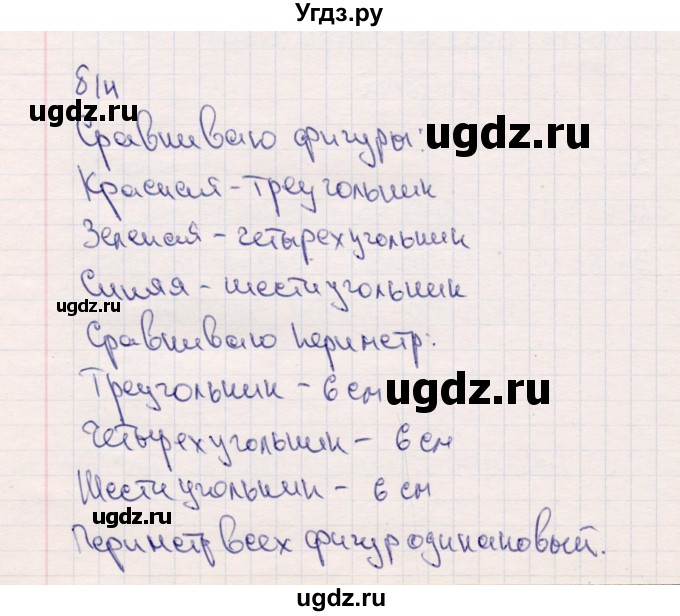 Угдз.ру
б/н
Сравниваю фигуры:
ugdz.ru
ugdz.ru
Красная - треугольник
Зеленая - четырехугольник
Синяя - шестиугольник
ugdz.ru
Сравниваю периметр:
Треугольник - 6 см
ugdz.ru
Четырехугольник - 6 см
Шестиугольник - 6 см
ugdz.ru
Периметр всех фигур одинаковый.
ugdz.ru
ugdz.ru